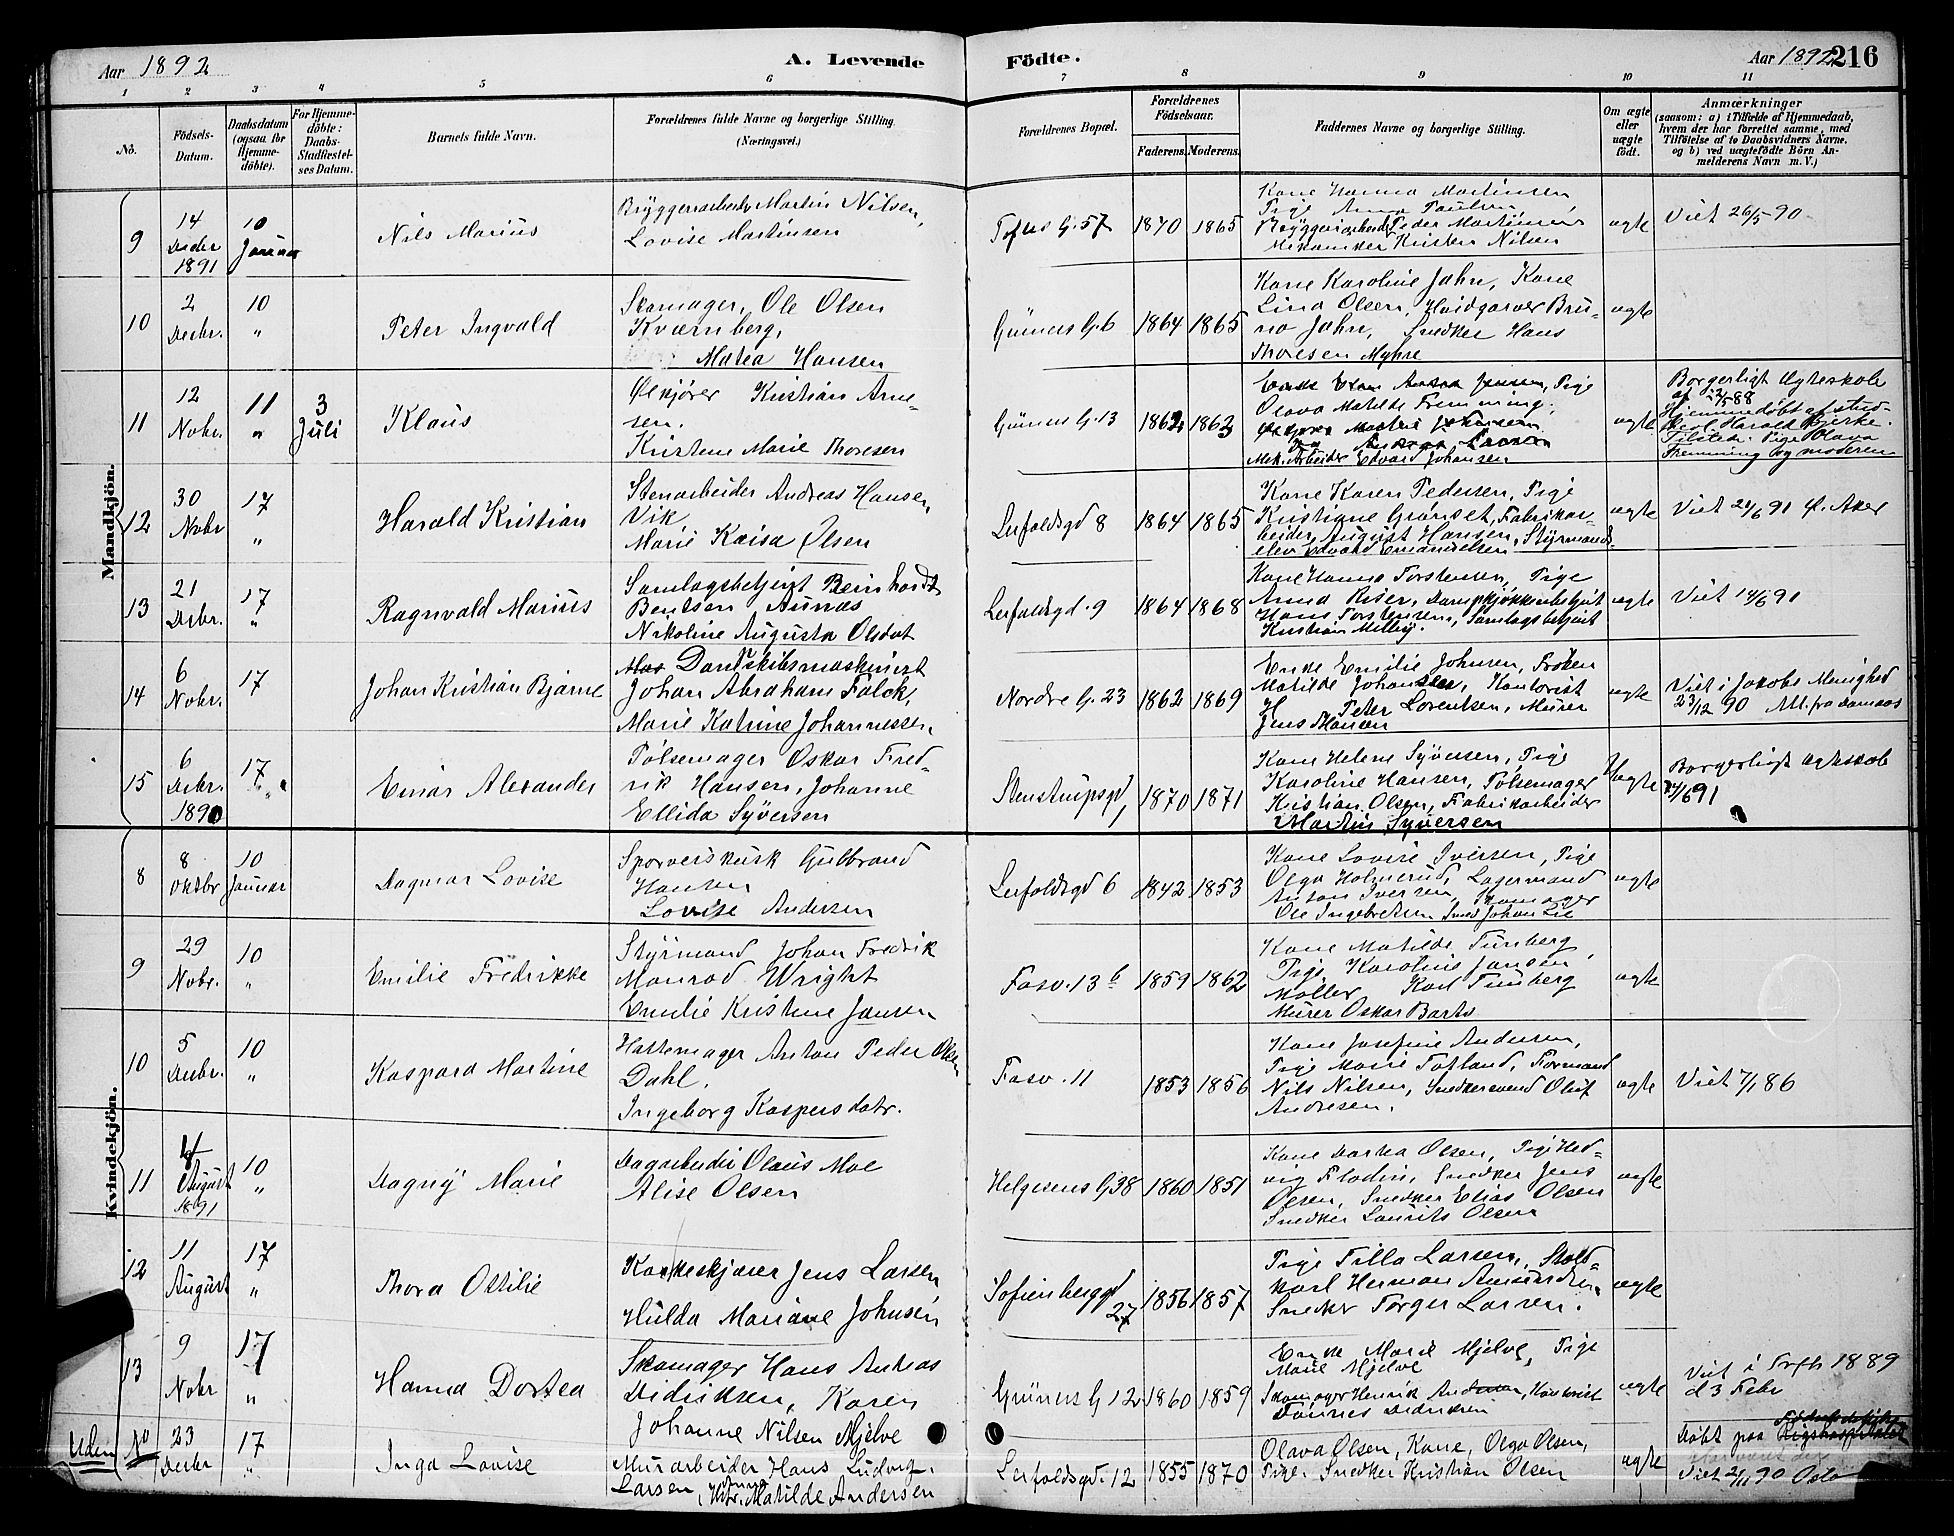 Aar 1892
A. Levende
Födte.
Aar 1892
216
1 2 3 4 5 6 7 8 9 10 11
No.
Födsels-
Datum.
Daabsdatum
(ogsaa for
Hjemme-
döbte).
For Hjemme-
döbte:
Daabs-
Stadfæstel-
ses Datum.
Barnets fulde Navn.
Forældrenes fulde Navne og borgerlige Stilling
(Næringsvei.)
Forældrenes Bopæl.
Forældrenes
Födselsaar.
Faderens. Moderens.
Faddernes Navne og borgerlige Stilling.
Om ægte
eller
uægte
födt.
Anmærkninger
(saasom: a) i Tilfælde af Hjemmedaab,
hvem der har forrettet samme, med
Tilföielse af to Daabsvidners Navne.
og b) ved uægtefödte Börn An-
melderens Navn m. V.)
Mandkjön.
9
14
Decbr
1891
10
Januar
Nils Marius
Bryggeriarbeider Martin Nilsen,
Lovise Martinsen
Toftes G. 57
1870 1865
Kone Hanna Martinsen
Pige Anna Paulsen
Bryggeriarbeider Peder Martinsen
Mekaniker Kristen Nilsen
ægte
Viet 26/5 90
10
2
Decbr.
10
"
Peter Ingvald
Skomager, Ole Olsen
Kværnberg,
Matea Hansen
Grüners G. 6
1864 1865
Kone Karoline Jahn, Kone
Lina Olsen, Hvidgarver Bru-
no Jahn, Snedker Hans
Thoresen Myhre
ægte
11
12
Nobr.
11
"
3
Juli
Klaus
Ølkjører Kristian Arne-
sen.
Kristene Marie Thoresen
Grüners G. 13
1862 1863
Pige
Olava Matilde Fremming,
Mek. Arbeider Edvard Johansen
ægte
Borgerligt Ægteskab
Hjemmedøbt af stud.
Harald Bjerke.
Tilstede: Pige Olava
Fremming og moderen
12
30
Nobr
17
"
Harald Kristian
Stenarbeider Andreas Hansen
Vik,
Marie Kaisa Olsen
Lerfaldsgd 8
1864 1865
Kone Karen Pedersen, Pige
Kristiane Grønset, Fabrikar-
beider August Hansen, Styrmands-
elev Edvard Emanuelsen
ægte
Viet 20/6 91 Ø. Aker
13
21
Decbr.
17
"
Ragnvald Marius
Samlagsbetjent Beinhardt
Bentsen Aunæs
Nikoline Augusta Olsdat
Lerfaldsgd. 9
1864 1868
Kone Hanna Torstensen, Pige
Anna Riser, Dampkjøkkenbetjent
Hans Torstensen, Samlagsbetjent
Kristian Melby.
ægte
Viet 14/6 91
14
6
Nobr.
17
Johan Kristian Bjarne
Dampskibsmaskinist
Johan Abraham Falck,
Marie Katrine Johannessen
Nordre G. 23
1862 1869
Enke Emilie Johnsen, Frøken
Matilde Johansen, Kontorist
Peter Lorentsen, Murer
Jens Hansen
ægte
Viet i Jakobs Menighed
23/12 90
15
6
Decbr.
1890
17
"
Einar Alexander
Pølsemager Oskar Fred-
rik Hansen, Johanne
Ellida Syversen
Stenstrupsgd 1
1870 1871
Kone Helene Syversen, Pige
Karoline Hansen, Pølsemager
Kristian Olsen, Fabrikarbeider
Martin Syversen
Uægte
Borgerligt Ægteskab
14/6 91
Kvindekjön.
8
8
Oktbr
10
Januar
Dagmar Lovise
Sporveiskusk Gulbrand
Hansen
Lovise Andersen
Lerfaldsgd 6
1842 1853
Kone Lovise Iversen, Pige
Olga Holmerud, Lagermand
Anton Iversen, Skomager
Ole Ingebretsen, Smed Johan Lie
ægte
9
29
Nobr.
10
"
Emilie Fredrikke
Styrmand Johan Fredrik
Monrad Wright
Emilie Kristine Jansen
Fosv. 13 b
1859 1862
Kone Matilde Tunberg,
Pige Karoline Jansen,
Møller Karl Tunberg
Murer Oskar Barts
ægte
10
5
Decbr.
10
"
Kaspara Martine
Hattemager Anton Peder Olsen
Dahl.
Ingeborg Kaspersdatr.
Fosv. 11
1853 1856
Kone Josefine Andersen,
Pige Marie Totland, Formand
Nils Nilsen, Snedkersvend Oluf
Andresen.
ægte
Viet 7/1 86
11
4
August
1891
10
"
Dagny Marie
Dagarbeider Olaus Moe
Alise Olsen
Helgesens G. 38
1860 1851
Kone Dortea Olsen, Pige Hed-
vig Flodin, Snedker Jens
Olsen, Snedker Elias Olsen
Snedker Laurits Olsen
ægte
12
11
August
17
"
Thora Ottilie
Karkeskjører Jens Larsen
Hulda Mariane Johnsen
Sofienberggd
27
1856 1857
Pige Tilla Larsen, Stald-
karl Herman Amundsen,
Snedker Torger Larsen.
ægte
13
9
Nobr
17
"
Hanna Dortea
Skomager Hans Andreas
Didriksen, Karen
Johanne Nilsen Mjelve
Grüners G 12
1860 1859
Enke Marie Mjelve, Pige
Marie Mjelve
Skomager Henrik Andersen, Kontorist
Tønnes Didriksen
ægte
Viet i Trfk 1889
d 3 Febr
Uden No
23
Decbr
17
"
Inga Lovise
Murarbeider Hans Ludvig
Larsen, Anna Matilde Andersen
Lerfaldsgd. 12
1855 1870
Olava Olsen, Kone, Olga Olsen,
Pige. Snedker Kristian Olsen
ægte
Døbt paa Rigshospitalet
Viet 2/11 90 Oslo